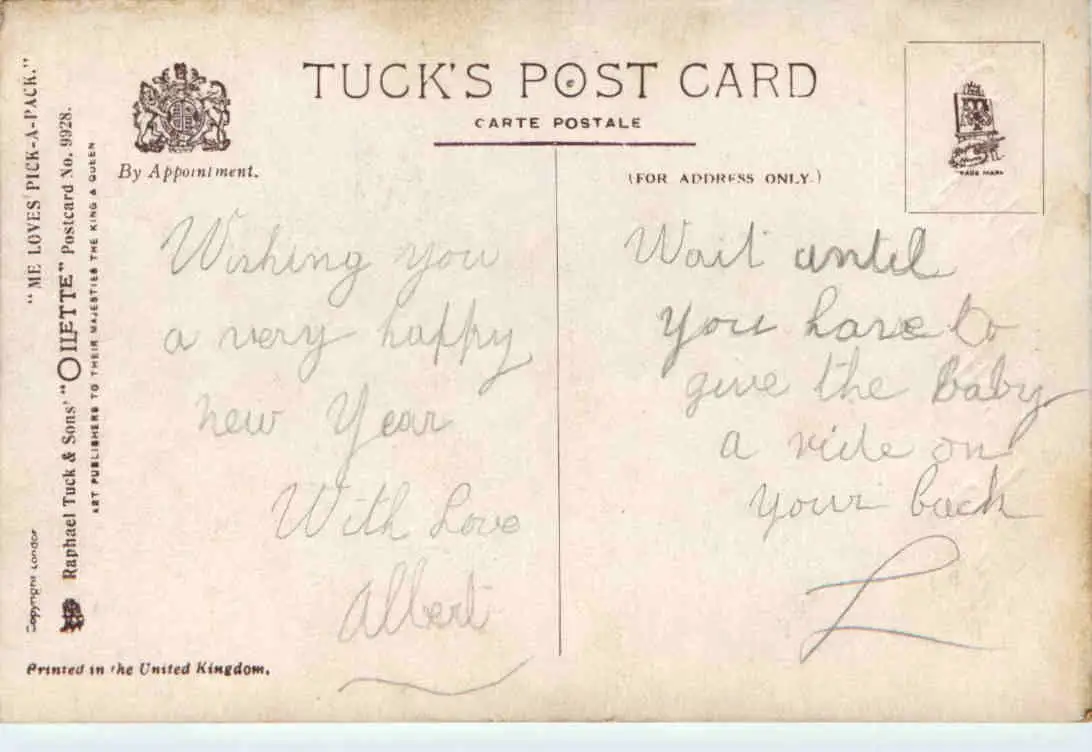 TUCK'S POST CARD
CARTE POSTALE
By Appointment.
(FOR ADDRESS ONLY.)
TRADE MARK
"ME LOVES PICK-A-PACK."
Raphael Tuck & Sons' "OILETTE" Postcard No. 9928.
ART PUBLISHERS TO THEIR MAJESTIES THE KING & QUEEN
Copyright London
Printed in the United Kingdom.
Wishing you
a very happy
new Year
With Love
Albert
Wait until
you have to
give the baby
a ride on
your back
L